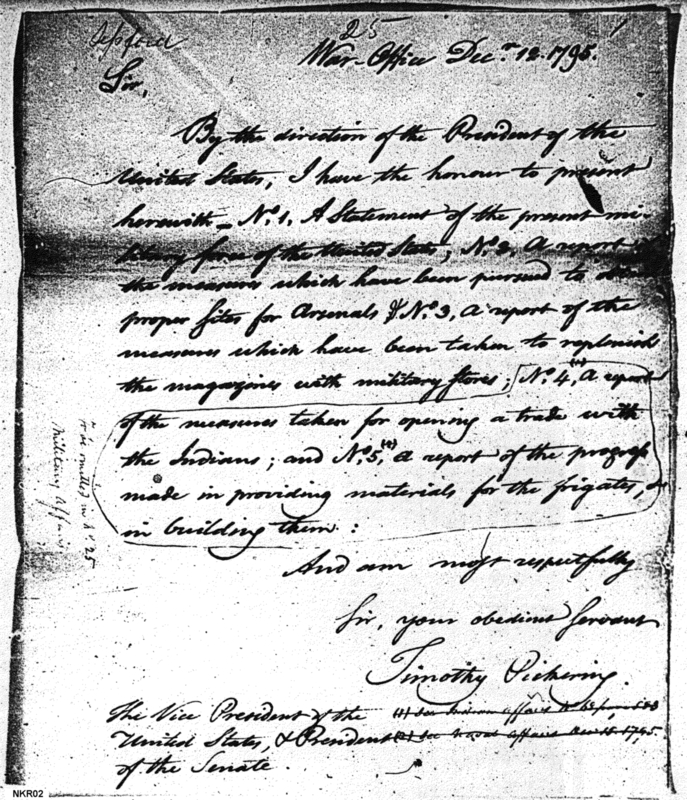 25
War-Office Dec.r 12. 1795.
Sir,
By the direction of the President of the
United States, I have the honour to present
herewith – No. 1. A Statement of the present mi-
litary force of the United States; No. 2, a report of
the measures which have been pursued to obtain
proper sites for Arsenals; No. 3, a report of the
measures which have been taken to replenish
the magazines with military stores; No. 4,(1) a report
of the measures taken for opening a trade with
the Indians; and No. 5,(2) a report of the progress
made in providing materials for the frigates, &
in building them:
And am most respectfully
Sir, your obedient servant
Timothy Pickering.
The Vice President of the
United States, & President
of the Senate.
(1) See Indian affairs
(2) See Naval affairs Dec 12. 1795.
To be omitted in No. 25
Military Affairs
NKR02